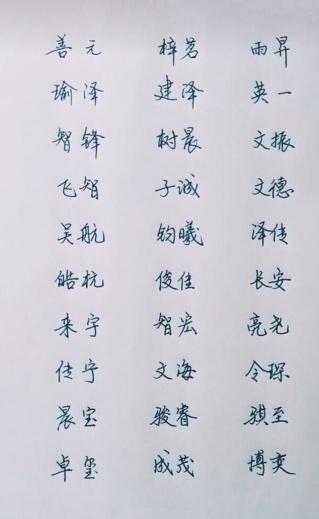 善元 梓茗 雨昇
瑜泽 建泽 英一
智锋 树晨 文振
飞智 子诚 文德
昊航 钧曦 泽传
皓杭 俊佳 长安
来宇 智宏 亮尧
传宁 文海 令琛
晨宝 骏睿 骐至
卓玺 成茂 博奕